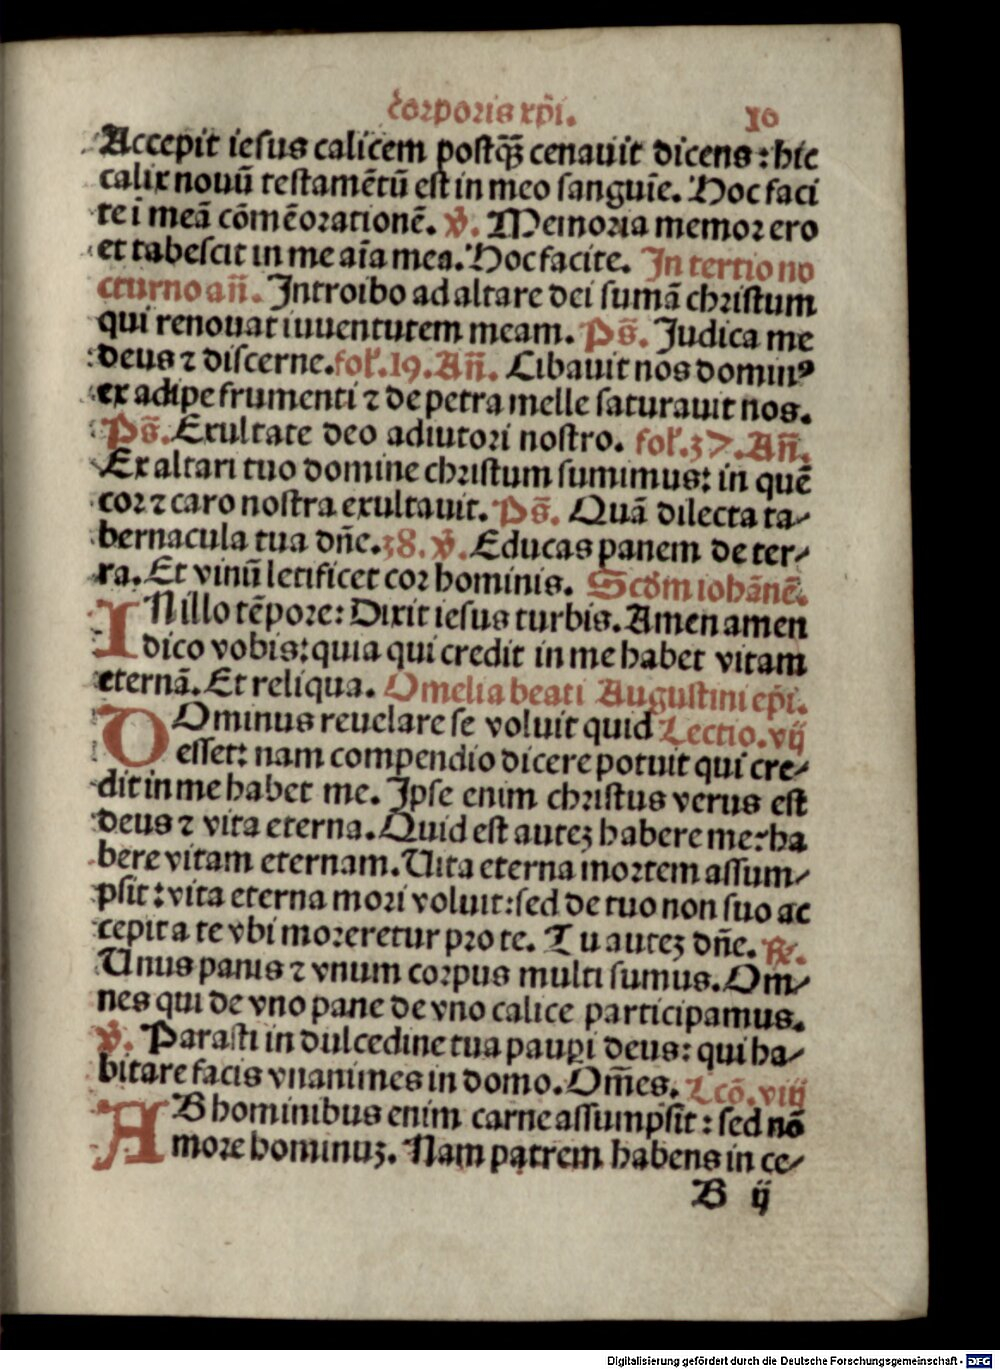 Corporis xp̄i. 10
Accepit iesus calicem postqȝ̄ cenauit dicens: hic
calix nouū testamētū est in meo sanguīe. Hoc faci
te ī meā cōmēorationē. v̄. Memoria memor ero
et tabescit in me aīa mea. Hoc facite. In tertio no
cturno an̄. Introibo ad altare dei sumā christum
qui renouat iuuentutem meam. Ps̄. Judica me
deus ⁊ discerne. fol̓. 19. An̄. Cibauit nos dominꝰ
ex adipe frumenti ⁊ de petra melle saturauit nos.
Ps̄. Exultate deo adiutori nostro. fol̓. 37. An̄.
Ex altari tuo domine christum sumimus: in quē
cor ⁊ caro nostra exultauit. Ps̄. Quā dilecta ta⸗
bernacula tua dn̄e. 38. v̄. Educas panem de ter⸗
ra. Et vinū letificet cor hominis. Scd̄m iohānē.
IN illo tēpore: Dixit iesus turbis. Amen amen
dico vobis: quia qui credit in me habet vitam
eternā. Et reliqua. Omelia beati Augustini ep̄i.
DOminus reuelare se voluit quid Lectio. vij
esset: nam compendio dicere potuit qui cre⸗
dit in me habet me. Ipse enim christus verus est
deus ⁊ vita eterna. Quid est auteȝ habere me: ha
bere vitam eternam. Uita eterna mortem assum⸗
psit: vita eterna mori voluit: sed de tuo non suo ac
cepit a te vbi moreretur pro te. Tu auteȝ dn̄e. ℟.
Unus panis ⁊ vnum corpus multi sumus. Om⸗
nes qui de vno pane de vno calice participamus.
v̄. Parasti in dulcedine tua pauꝑi deus: qui ha⸗
bitare facis vnanimes in domo. Om̄es. Lcō. viij
AB hominibus enim carne assumpsit: sed nō
more hominuȝ. Nam patrem habens in ce⸗
B ij
Digitalisierung gefördert durch die Deutsche Forschungsgemeinschaft - DFG